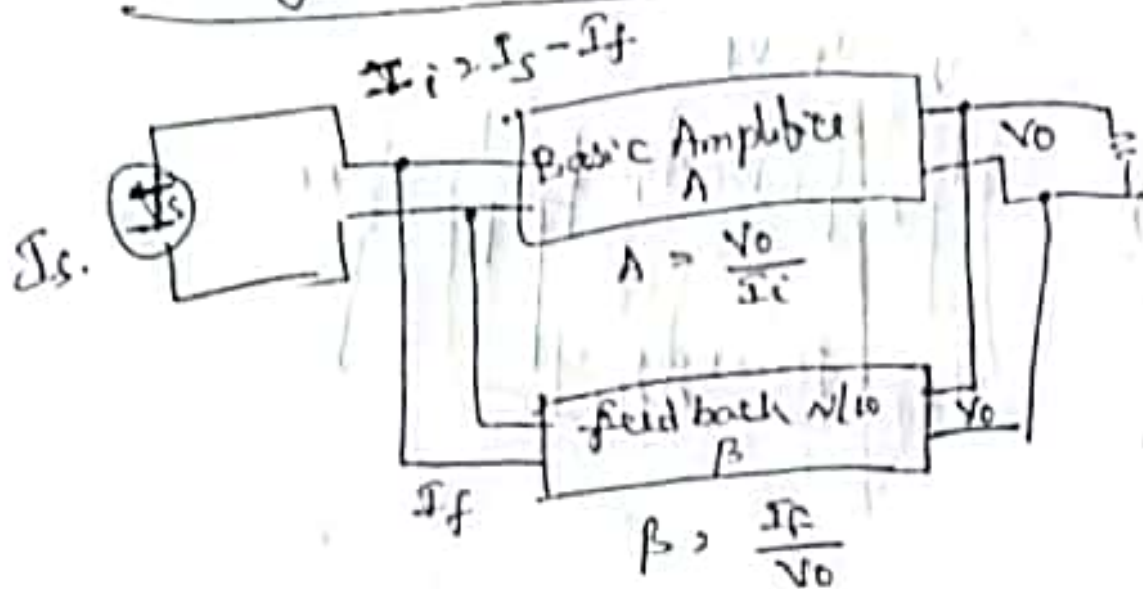 Ii = Is - If
Basic Amplifier
A
Vo
Vs
Is.
A = Vo/Ii
feed back N/w
β
Vo
If
β = If/Vo